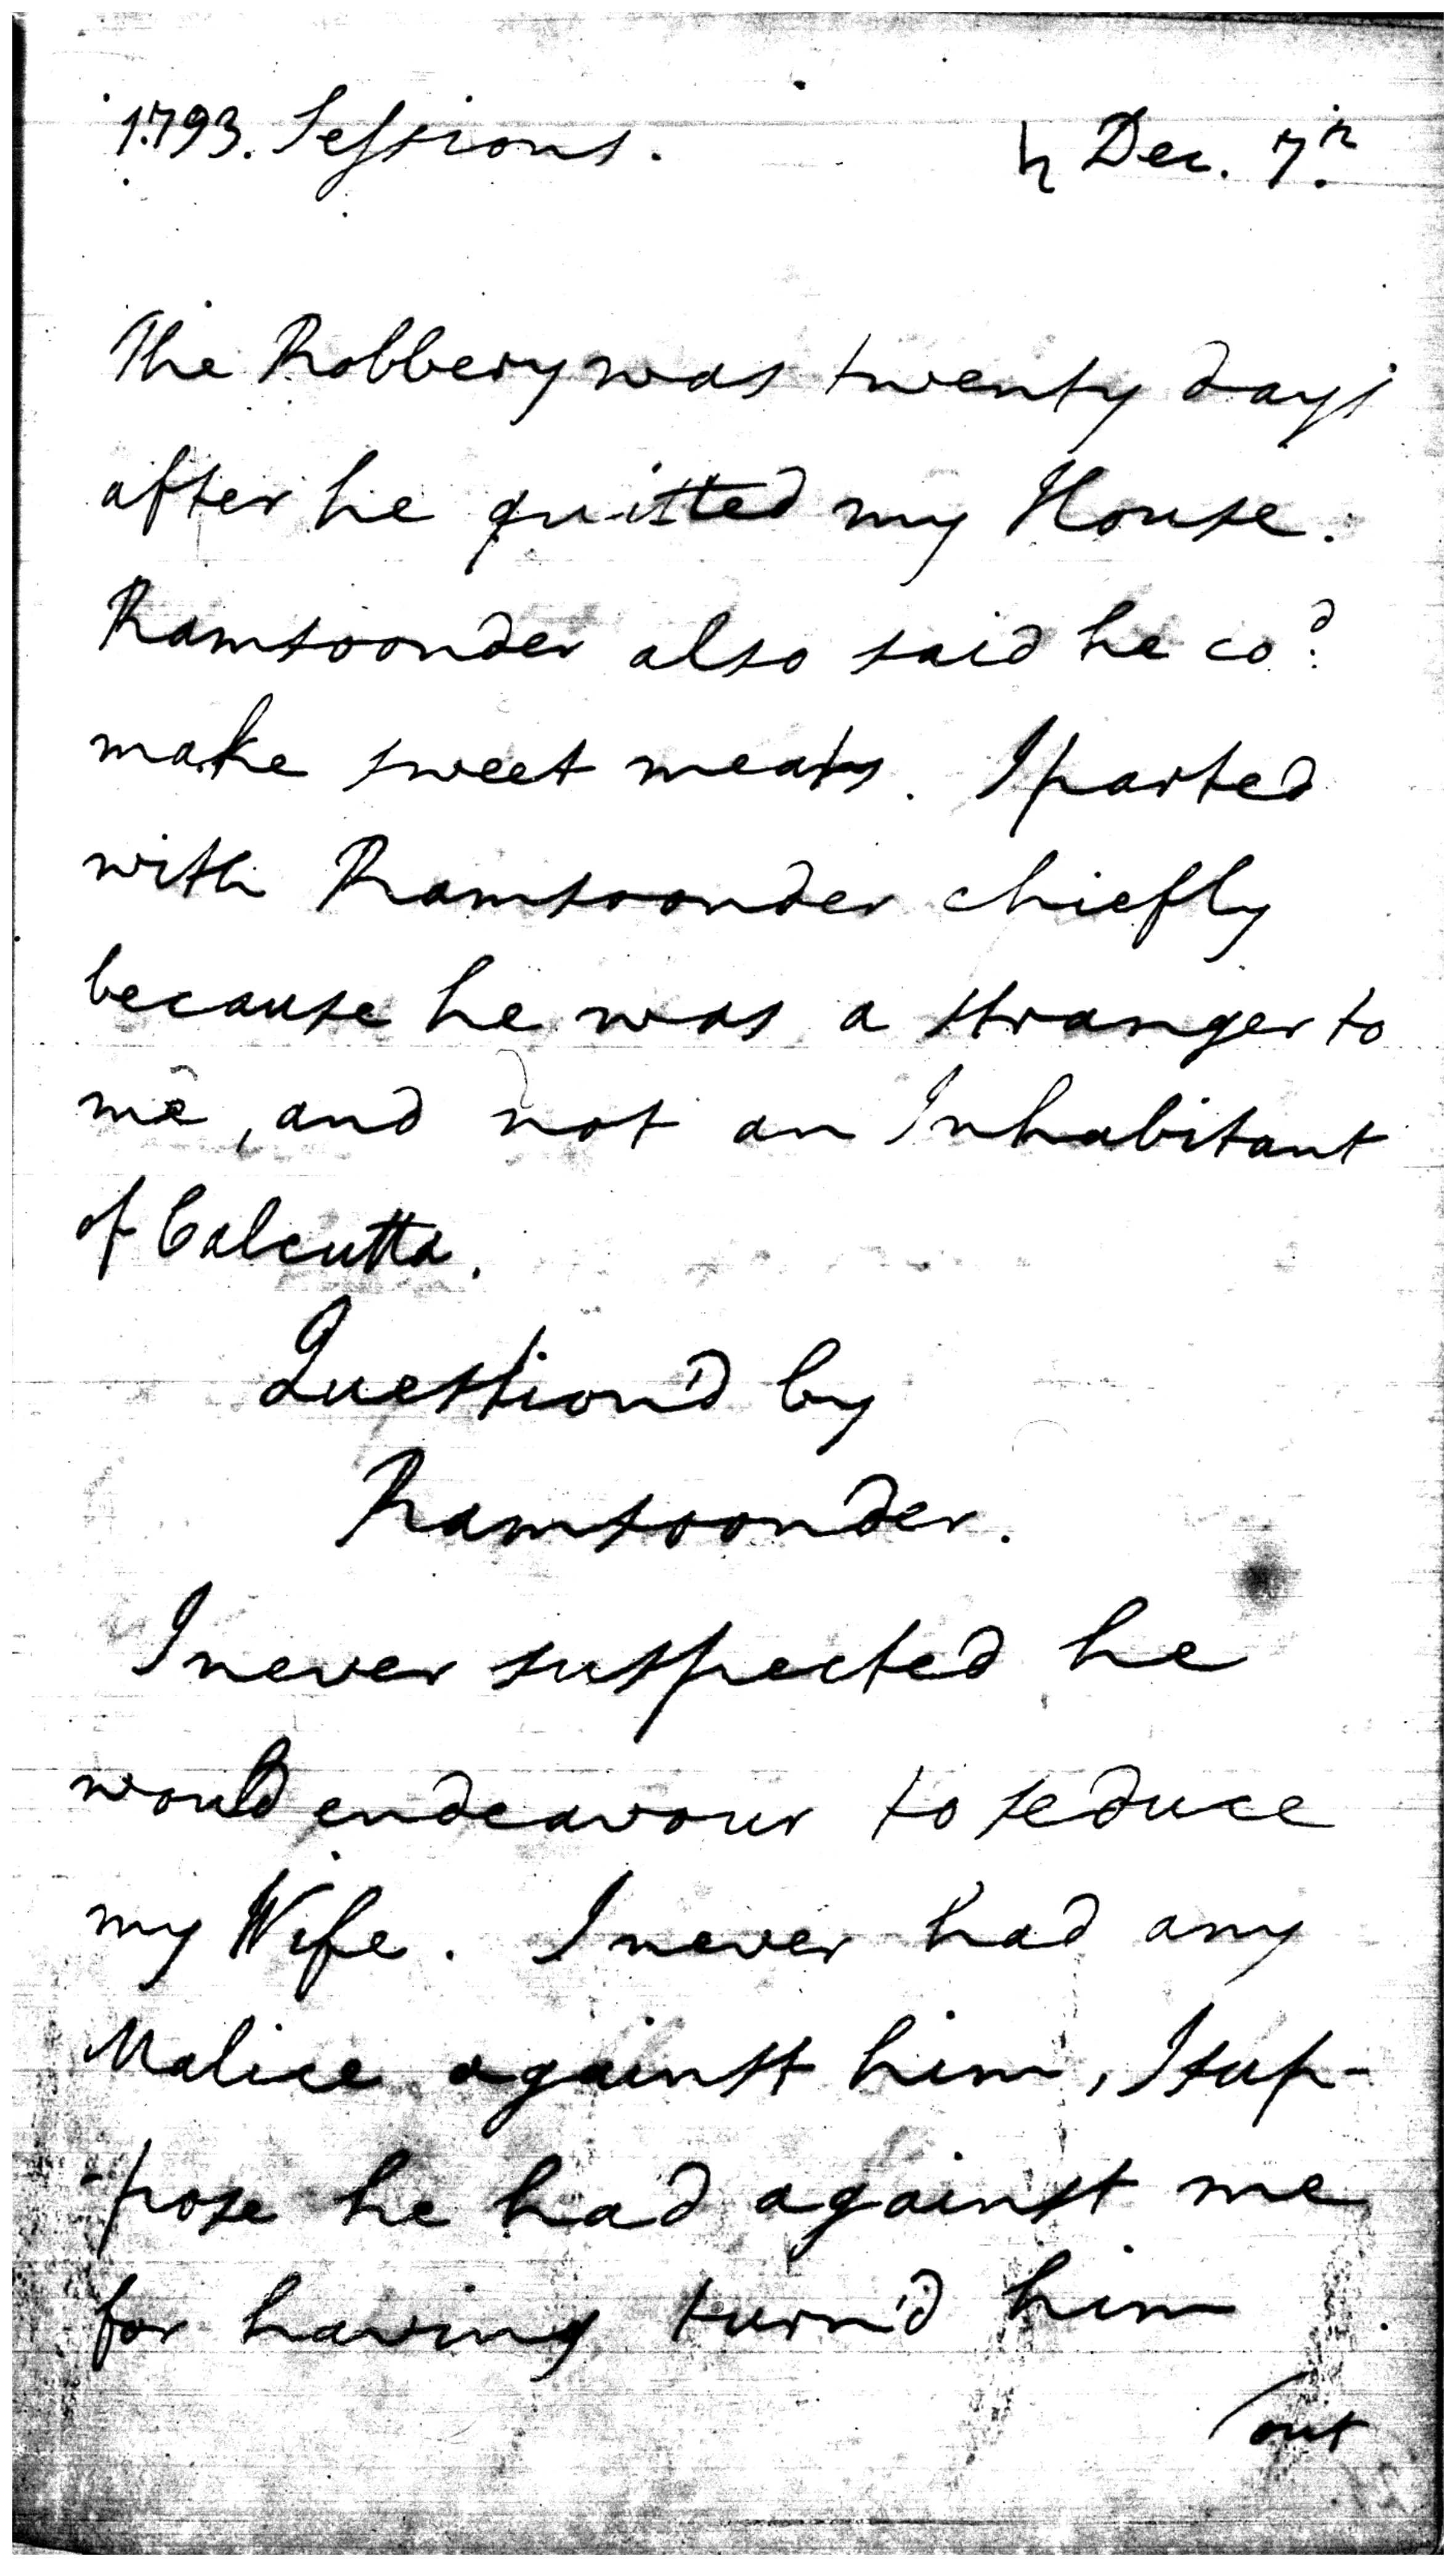 1793. Sessions. ♄ Dec. 7th
The Robbery was twenty days
after he quitted my House.
Ramsoonder also said he cod.
make sweet meats. I parted
with Ramsoonder chiefly
because he was a stranger to
me, and not an Inhabitant
of Calcutta.
Question'd by
Ramsoonder.
I never suspected he
would endeavour to seduce
my Wife. I never had any
Malice against him, I sup-
-pose he had against me
for having turn'd him
out